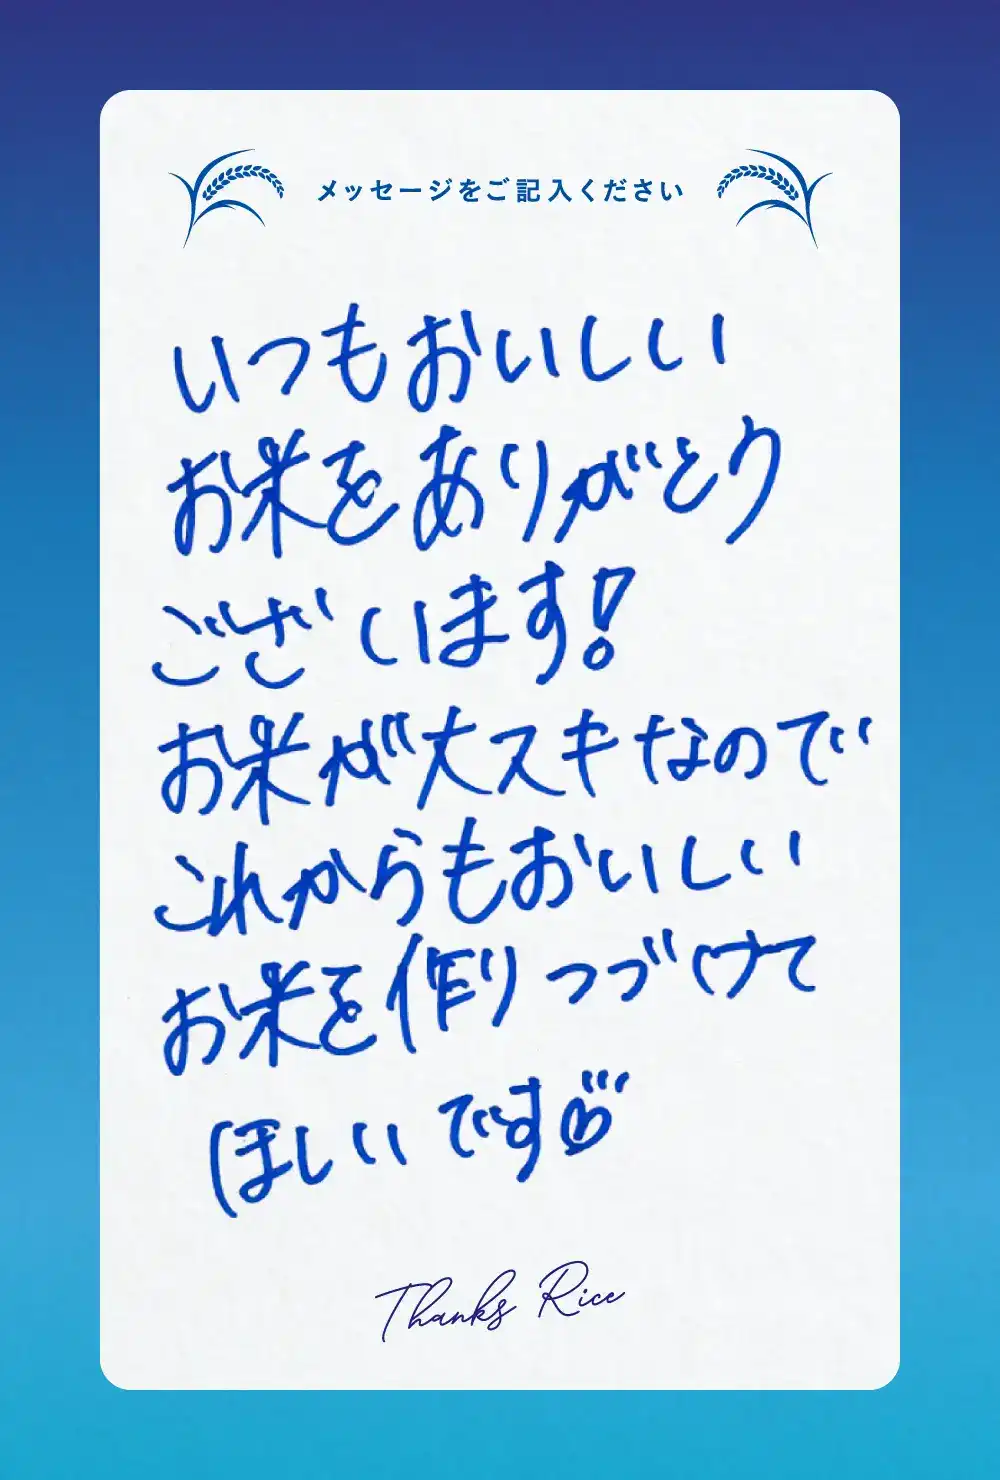 メッセージをご記入ください
いつもおいしい
お米をありがとう
ございます!
お米が大スキなので
これからもおいしい
お米を作りつづけて
ほしいです
Thanks Rice